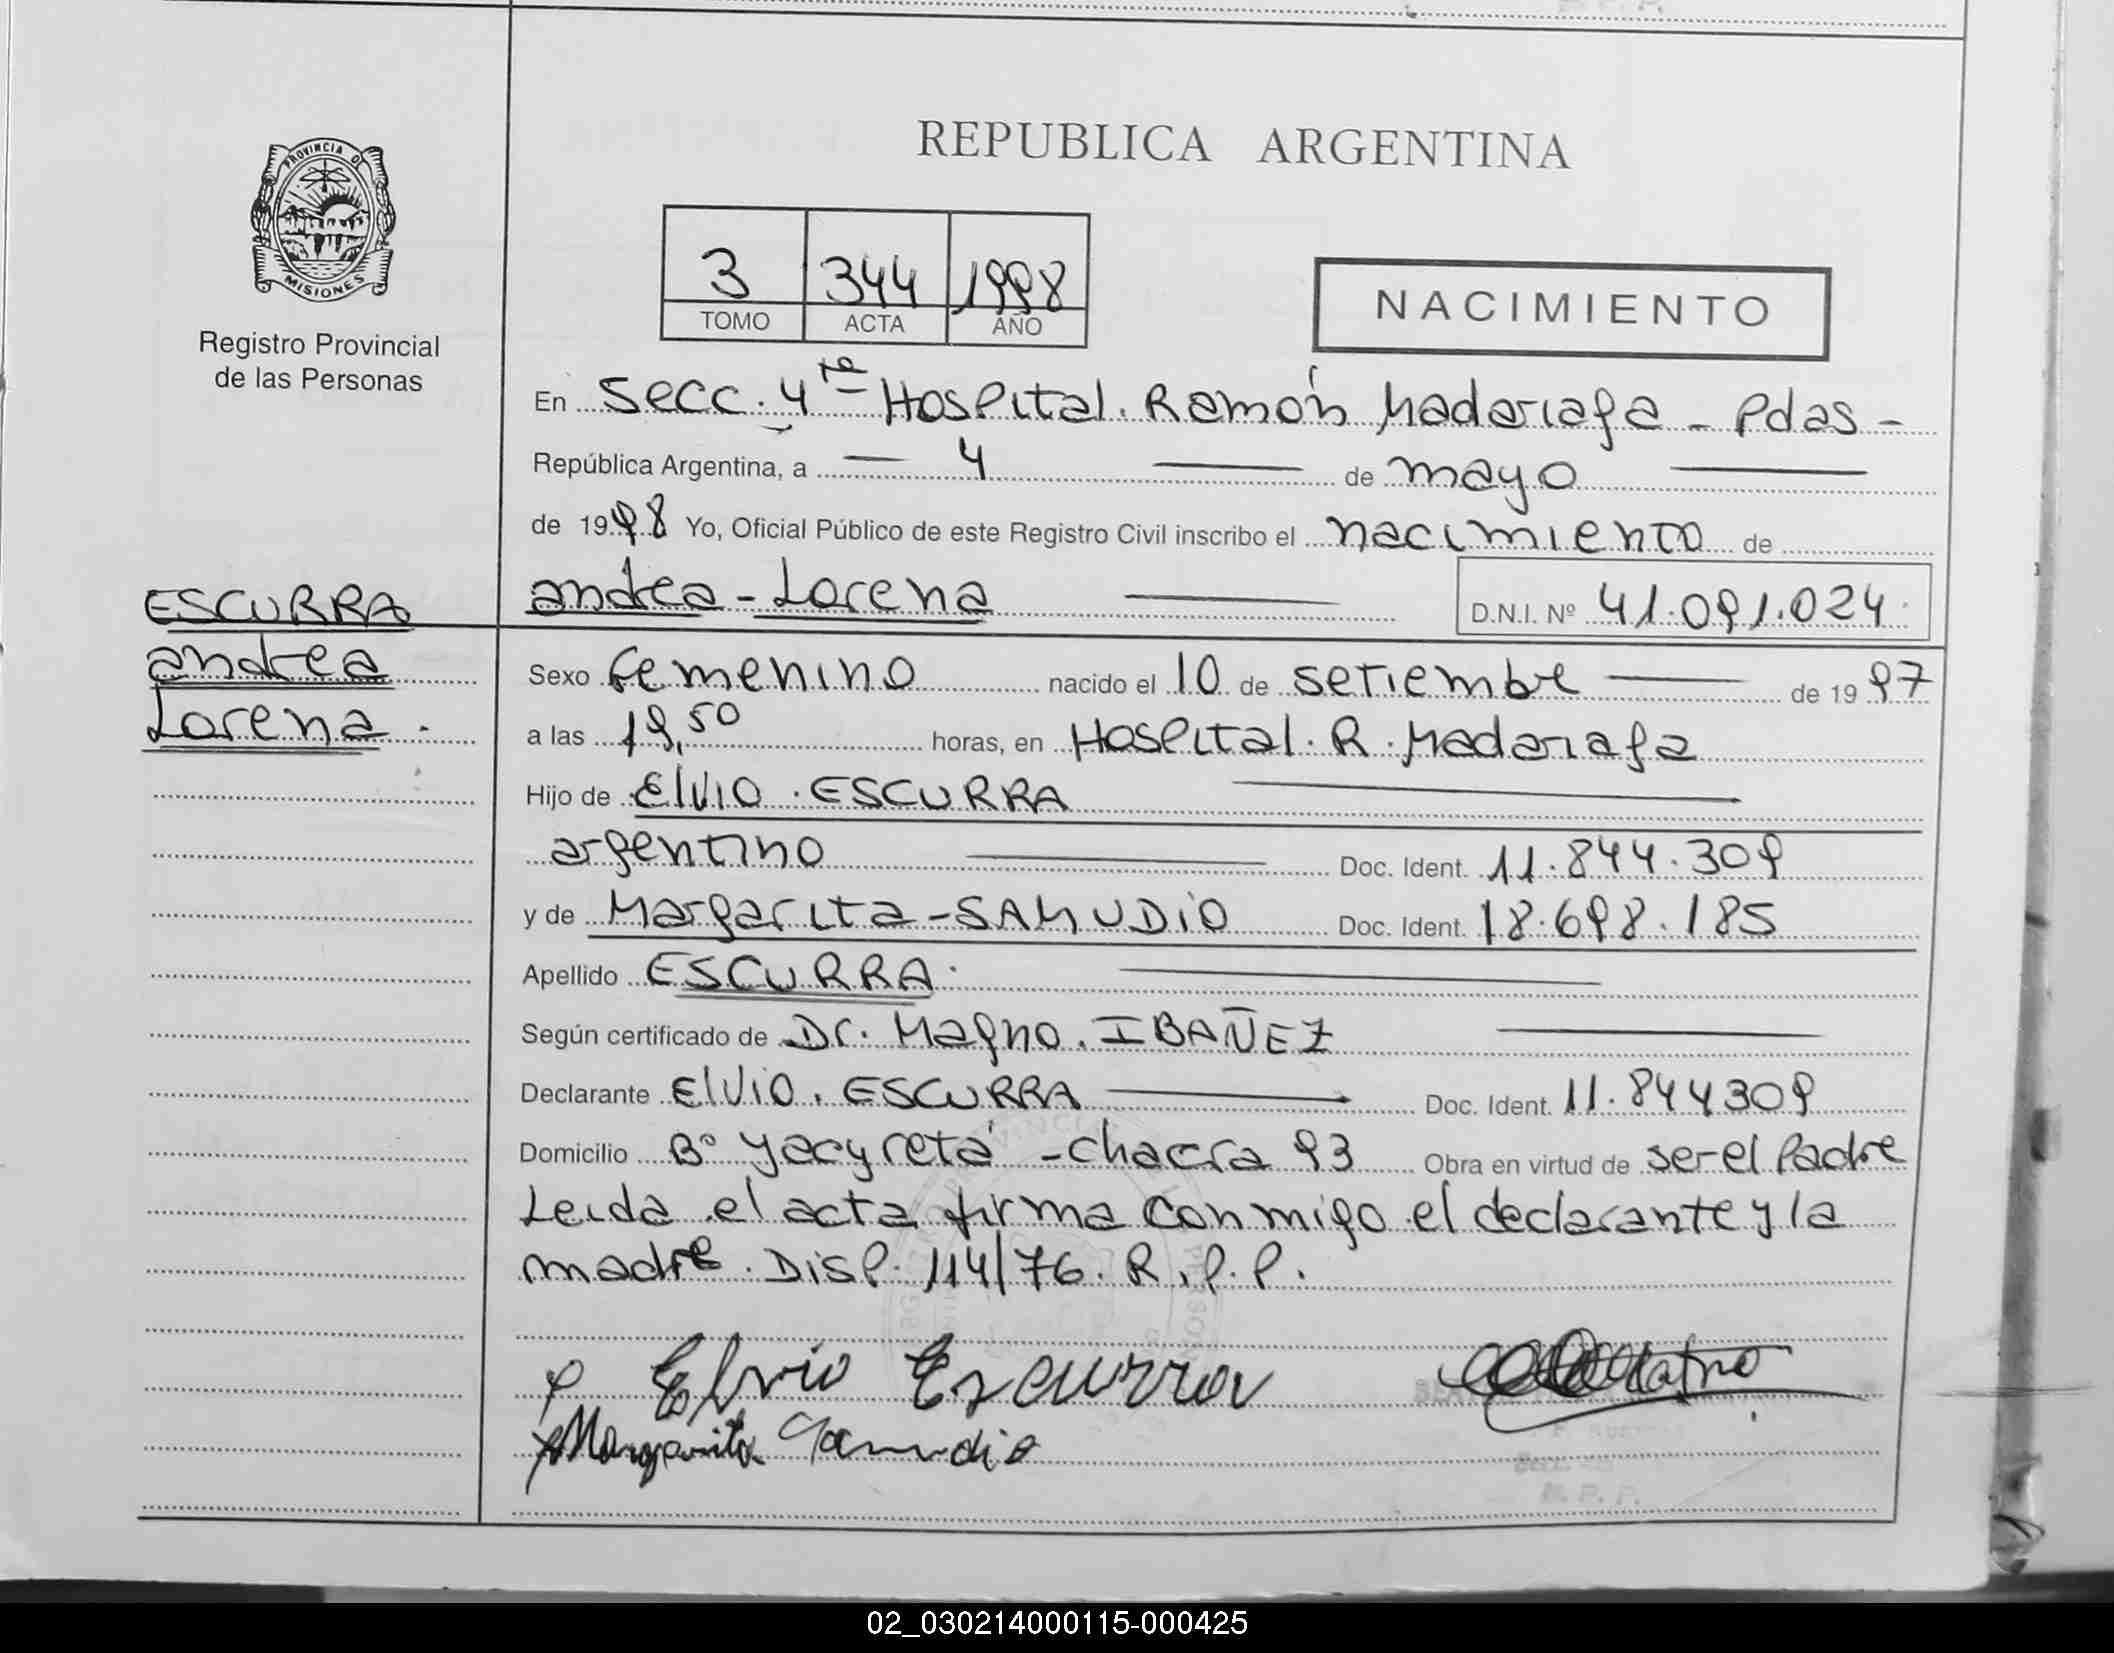 PROVINCIA D
MISIONES
Registro Provincial
de las Personas
REPUBLICA ARGENTINA
3 344 1998
TOMO ACTA AÑO
NACIMIENTO
En Secc. 4ta Hospital. Ramón Madariaga - Pdas -
República Argentina, a — 4 — de mayo —
de 1998 Yo, Oficial Público de este Registro Civil inscribo el nacimiento de
andrea - Lorena — D.N.I. Nº 41.091.024.
ESCURRA
andrea
Lorena.
Sexo femenino nacido el 10 de setiembre — de 1997
a las 19,50 horas, en Hospital. R. Madariaga
Hijo de Elvio. ESCURRA —
argentino — Doc. Ident. 11.844.309
y de Margarita - SAMUDIO Doc. Ident. 18.698.185
Apellido ESCURRA. —
Según certificado de Dr. Magno. IBAÑEZ —
Declarante Elvio. ESCURRA — Doc. Ident. 11.844309
Domicilio Bº Yacyretá - chacra 93 Obra en virtud de ser el Padre
Leida el acta firma conmigo el declarante y la
madre. Disp. 114/76. R.P.P.
Elvio Escurra
Margarita Samudio
02_030214000115-000425